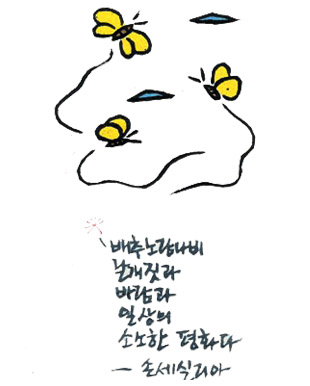 배추노랑나비
날개짓과
바람과
일상의
소소한 평화다
— 손세실리아